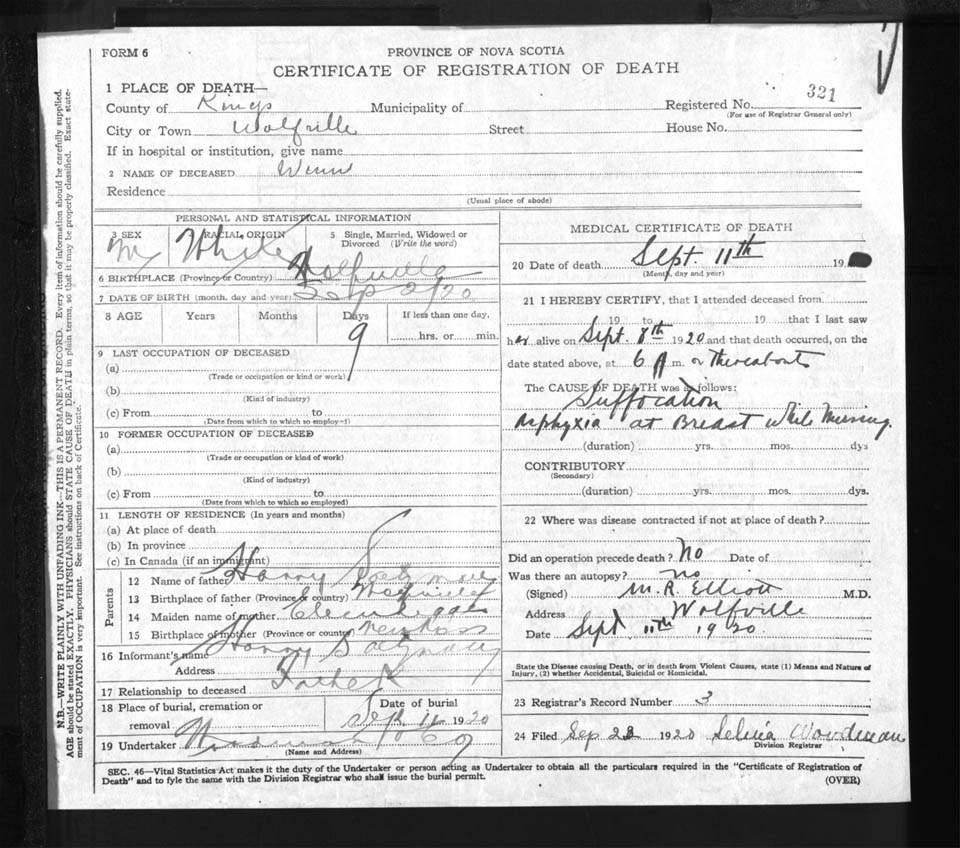 FORM 6
PROVINCE OF NOVA SCOTIA
CERTIFICATE OF REGISTRATION OF DEATH
321
1 PLACE OF DEATH—
County of Kings Municipality of Registered No.
(For use of Registrar General only)
City or Town Wolfville Street House No.
If in hospital or institution, give name
2 NAME OF DECEASED
Residence
(Usual place of abode)
PERSONAL AND STATISTICAL INFORMATION
3 SEX RACIAL ORIGIN 5 Single, Married, Widowed or Divorced (Write the word)
White
6 BIRTHPLACE (Province or Country) Wolfville
7 DATE OF BIRTH (month, day and year) Sep 2/20
8 AGE Years Months Days If less than one day,
9 hrs. or min.
9 LAST OCCUPATION OF DECEASED
(a)
(Trade or occupation or kind or work)
(b)
(Kind of industry)
(c) From to
(Date from which to which so employed)
10 FORMER OCCUPATION OF DECEASED
(a)
(Trade or occupation or kind of work)
(b)
(Kind of industry)
(c) From to
(Date from which to which so employed)
11 LENGTH OF RESIDENCE (In years and months)
(a) At place of death
(b) In province
(c) In Canada (if an immigrant)
Parents
12 Name of father Harry
13 Birthplace of father (Province or country) Wolfville
14 Maiden name of mother
15 Birthplace of mother (Province or country)
16 Informant's name Harry
Address
17 Relationship to deceased Father
18 Place of burial, cremation or removal Date of burial
Sep 1920
19 Undertaker
(Name and Address)
MEDICAL CERTIFICATE OF DEATH
20 Date of death Sept. 11th 19
(Month, day and year)
21 I HEREBY CERTIFY, that I attended deceased from
19 to 19 that I last saw
her alive on Sept. 8th 1920 and that death occurred, on the
date stated above, at 6 A.m. or thereabouts
The CAUSE OF DEATH was as follows:
Suffocation
Asphyxia at Breast while Nursing.
(duration) yrs. mos. dys
CONTRIBUTORY
(Secondary)
(duration) yrs. mos. dys.
22 Where was disease contracted if not at place of death?
Did an operation precede death? No Date of
Was there an autopsy? No
(Signed) M. R. Elliott M.D.
Address Wolfville
Date Sept 11th 1920
State the Disease causing Death, or in death from Violent Causes, state (1) Means and Nature of Injury, (2) whether Accidental, Suicidal or Homicidal.
23 Registrar's Record Number 3
24 Filed Sep 22 1920
Division Registrar
SEC. 46—Vital Statistics Act makes it the duty of the Undertaker or person acting as Undertaker to obtain all the particulars required in the "Certificate of Registration of
Death" and to fyle the same with the Division Registrar who shall issue the burial permit.
(OVER)
N.B.—WRITE PLAINLY WITH UNFADING INK—THIS IS A PERMANENT RECORD. Every item of information should be carefully supplied.
AGE should be stated EXACTLY. PHYSICIANS should STATE CAUSE OF DEATH in plain terms, so that it may be properly classified. Exact statement of OCCUPATION is very important. See instructions on back of Certificate.